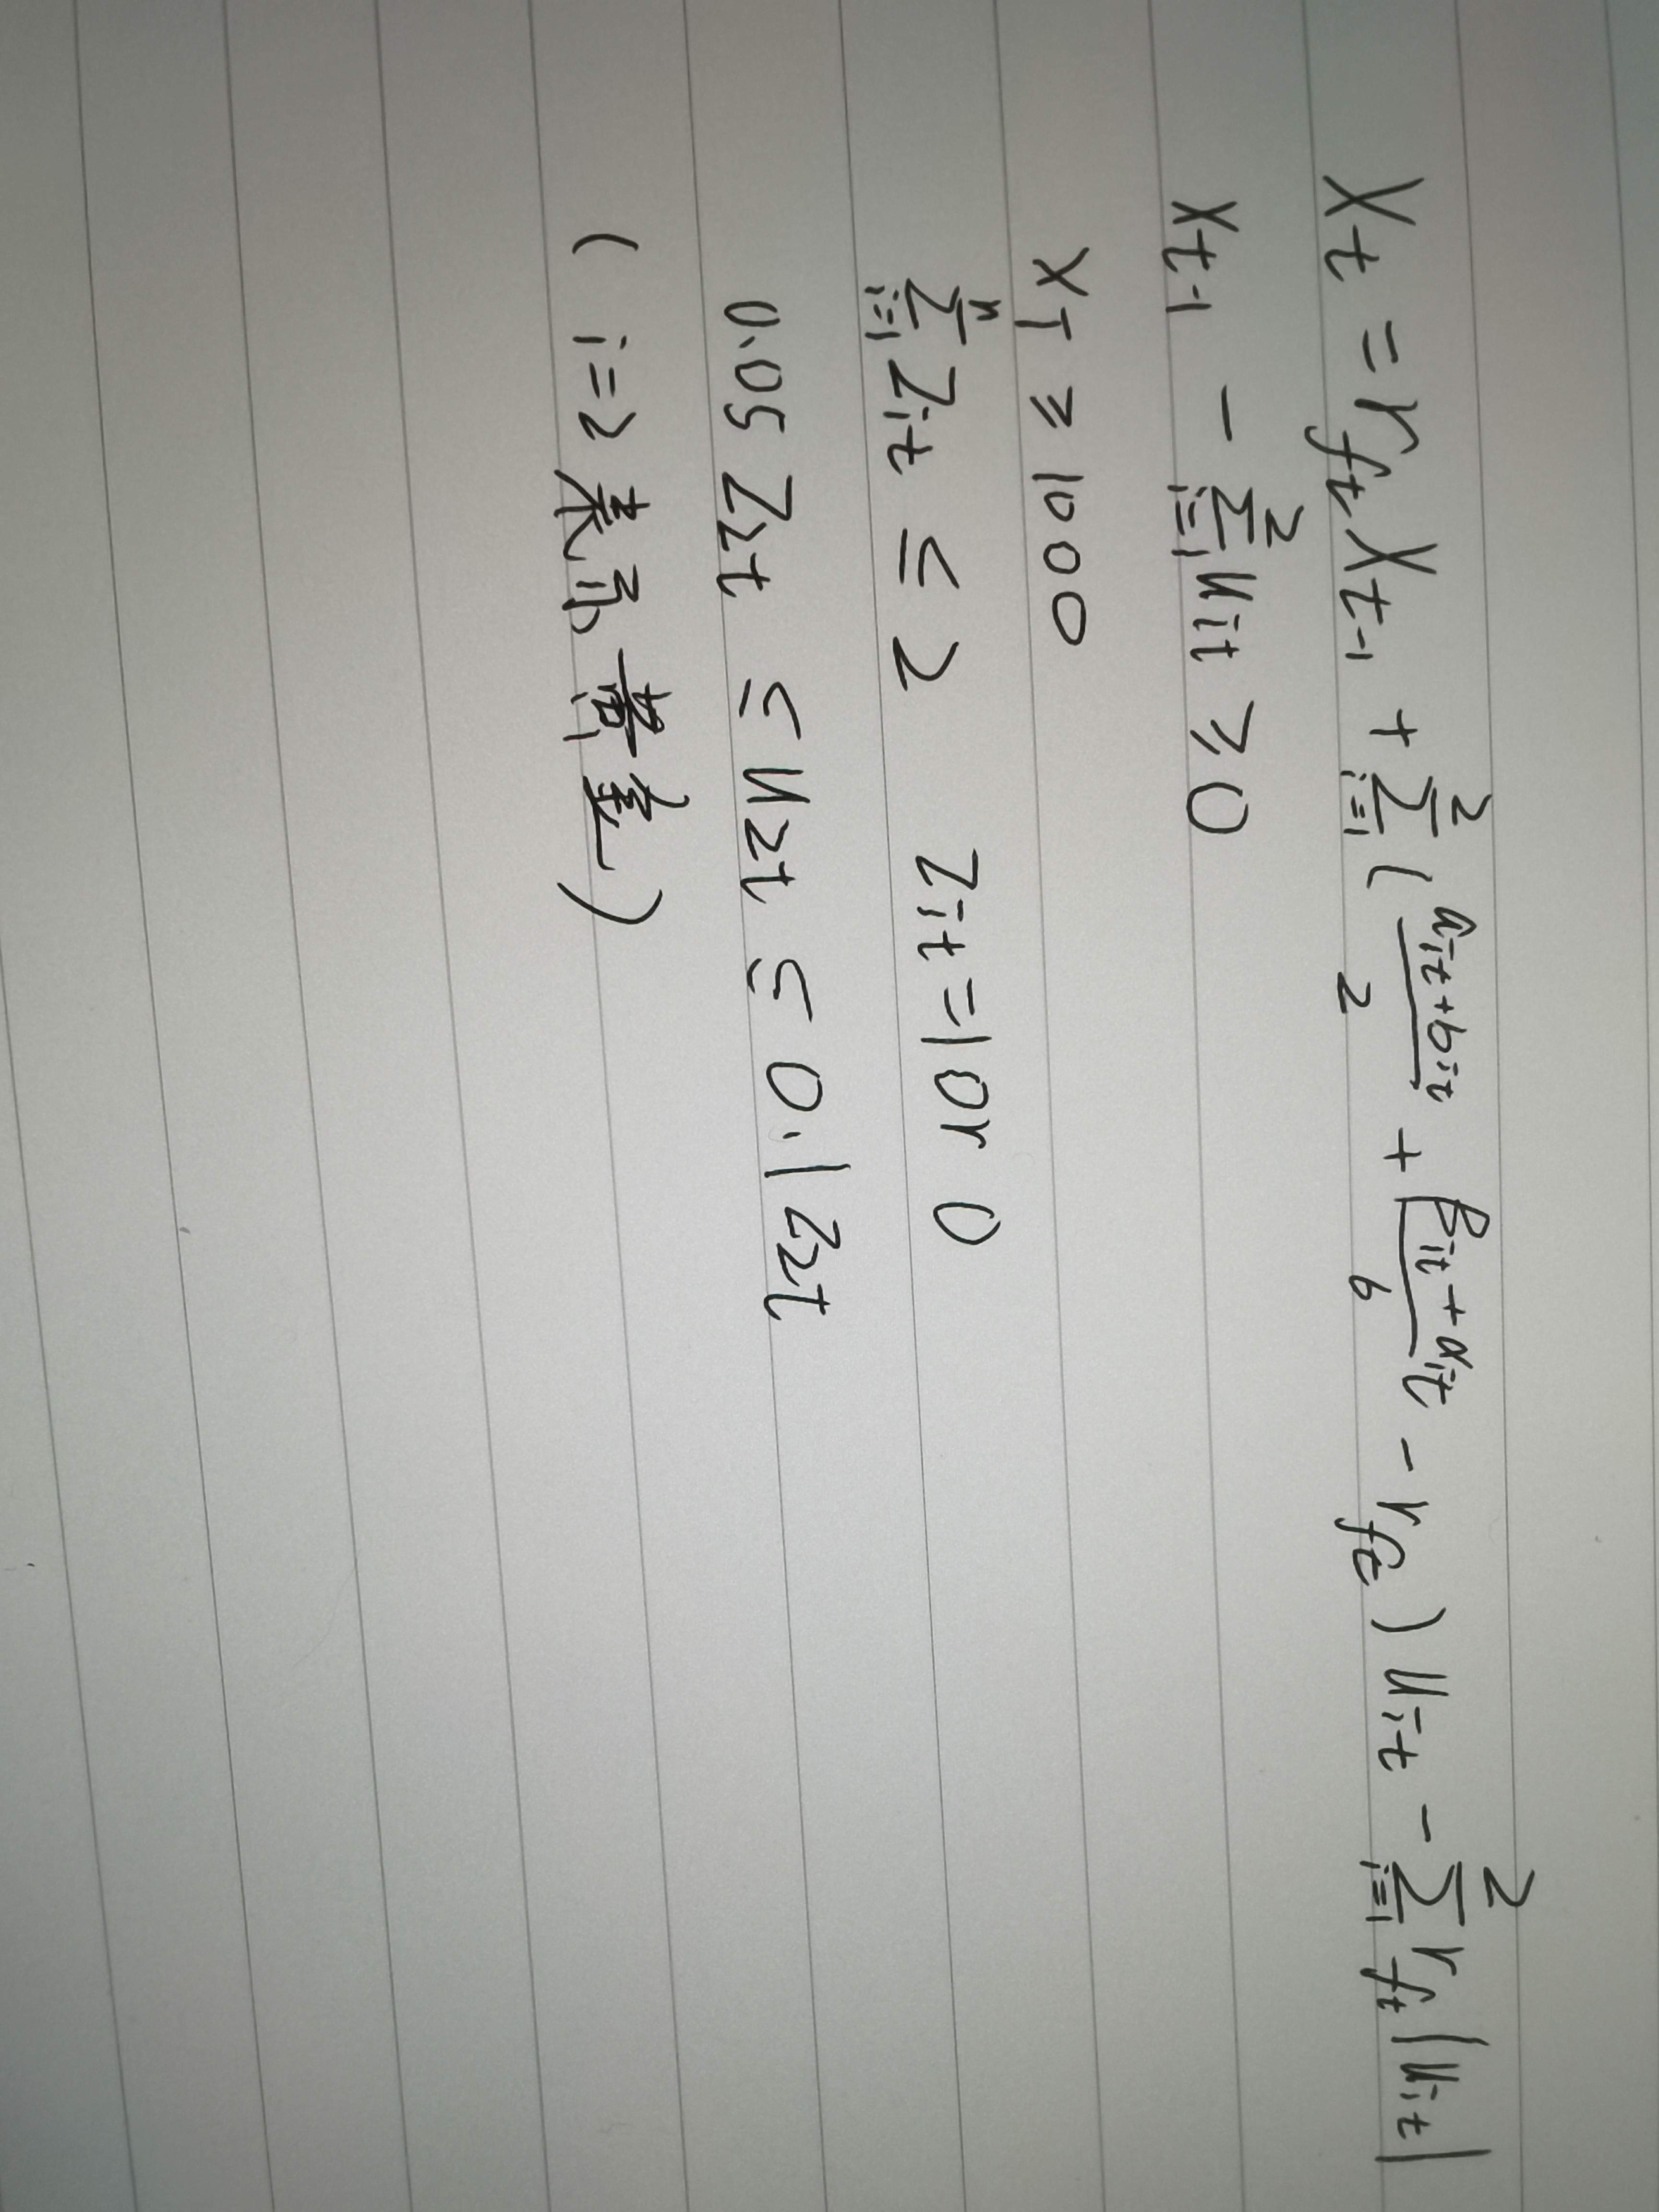 X_t = r_{ft} X_{t-1} + \sum_{i=1}^{2} ( \frac{a_{it}+b_{it}}{2} + \frac{β_{it}+α_{it}}{6} - r_{ft} ) u_{it} - \sum_{i=1}^{2} r_{ft} |u_{it}|
X_{t-1} - \sum_{i=1}^{2} u_{it} ≥ 0
X_T ≥ 1000
\sum_{i=1}^{n} Z_{it} ≤ 2   Z_{it} = 1 or 0
0.05 Z_{2t} ≤ u_{2t} ≤ 0.1 Z_{2t}
( i=2 表示黄金 )